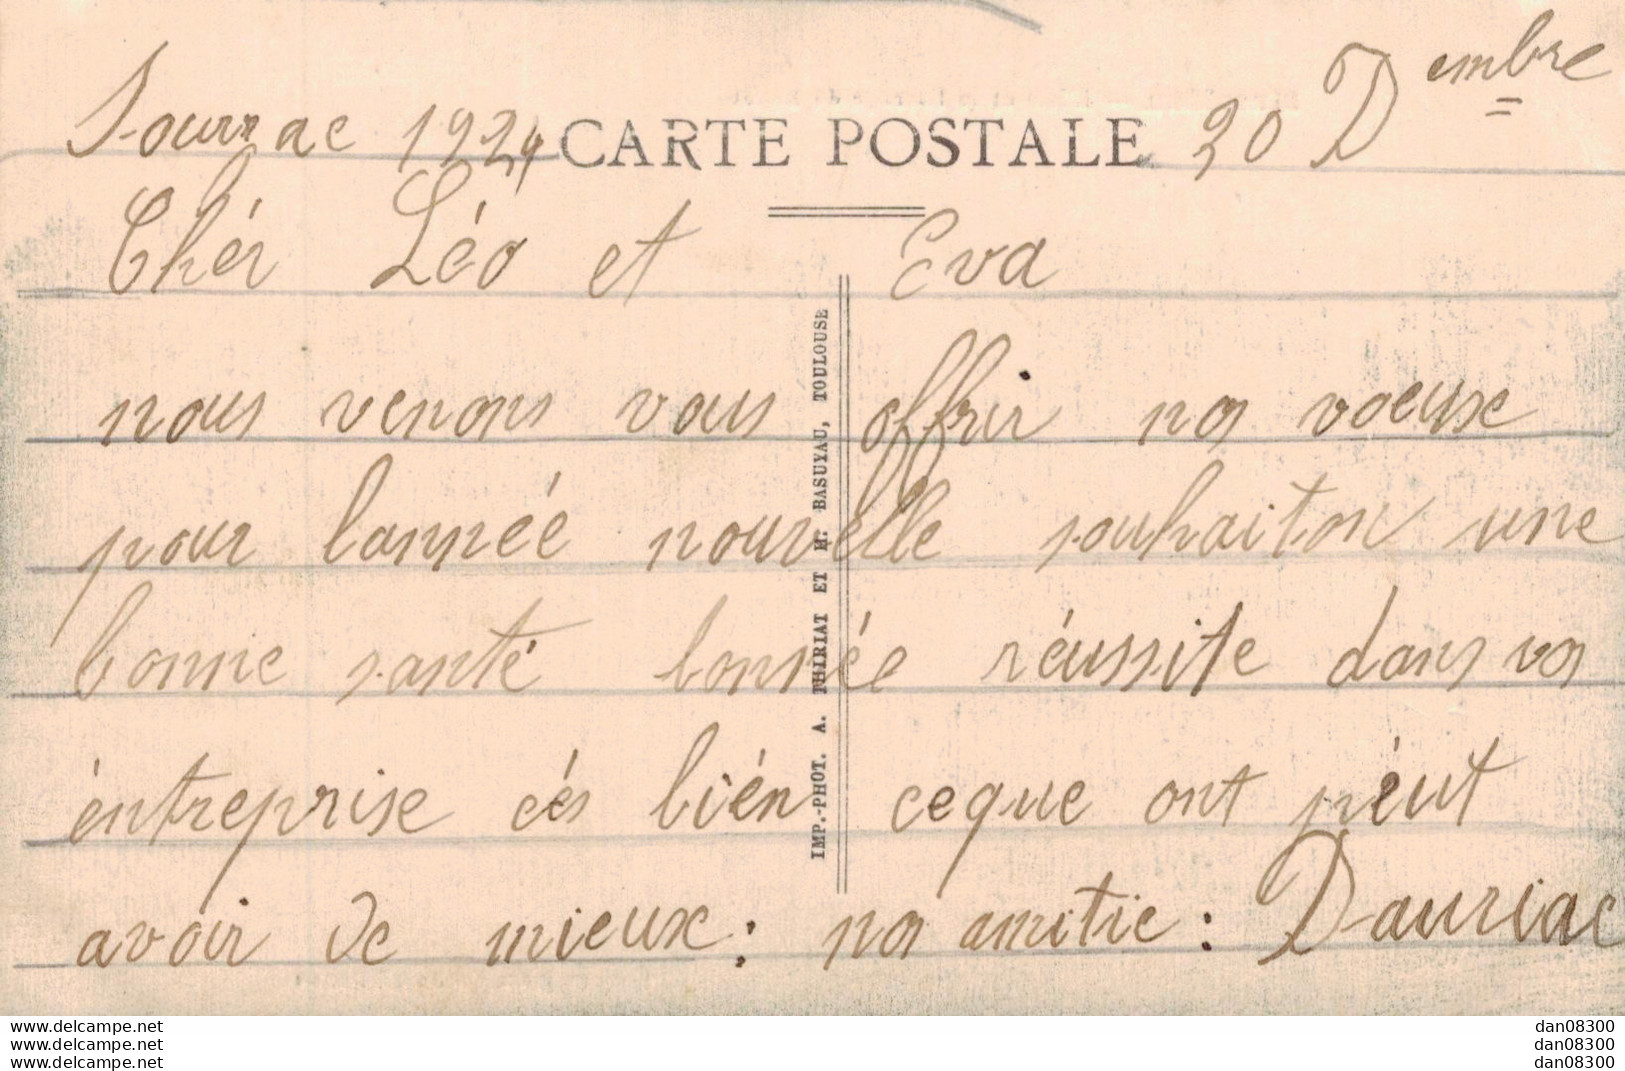 Sournac 1924 CARTE POSTALE 30 Dembre
Chér Léo et Eva
nous venons vous offrir nos voeuxe
pour lannéé nouvelle souhaiton une
bonne santé bonnée réussite dans vos
éntreprise cés bién ceque ont péut
avoir de mieuxe : nos amitie : Dauriac
IMP.-PHOT. A. THIRIAT ET H. BASUYAU, TOULOUSE
www.delcampe.net
www.delcampe.net
www.delcampe.net
dan08300
dan08300
dan08300